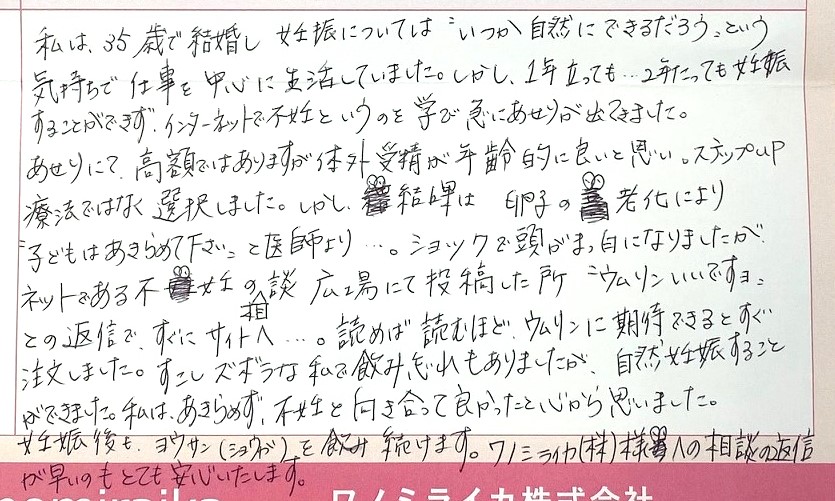 私は、35歳で結婚し 妊娠については〝いつか自然にできるだろう〟という
気持ちで仕事を中心に生活していました。しかし、1年立っても…2年たっても妊娠
することができず、インターネットで不妊というのを学び急にあせりが出てきました。
あせりにて、高額ではありますが体外受精が年齢的に良いと思い。ステップUP
療法ではなく選択しました。しかし、結果は 卵子の老化により
〝子どもはあきらめて下さい〟と医師より…。ショックで頭がまっ白になりましたが、
ネットである不妊の相談広場にて投稿した所〝ウムリンいいですョ〟
との返信で、すぐにサイトへ…。読めば読むほど、ウムリンに期待できるとすぐ
注文しました。すこしズボラな私で飲み忘れもありましたが、自然妊娠すること
ができました。私は、あきらめず、不妊と向き合って良かったと心から思いました。
妊娠後も、ヨウサン(ショウガ)を飲み続けます。ワノミライカ(株)様への相談の返信
が早いのもとても安心いたします。
ワノミライカ株式会社